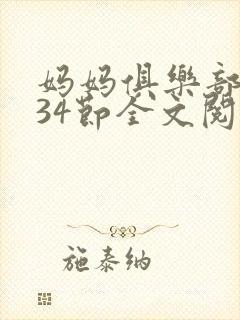 妈妈俱樂部
34節全文閱
施泰纳